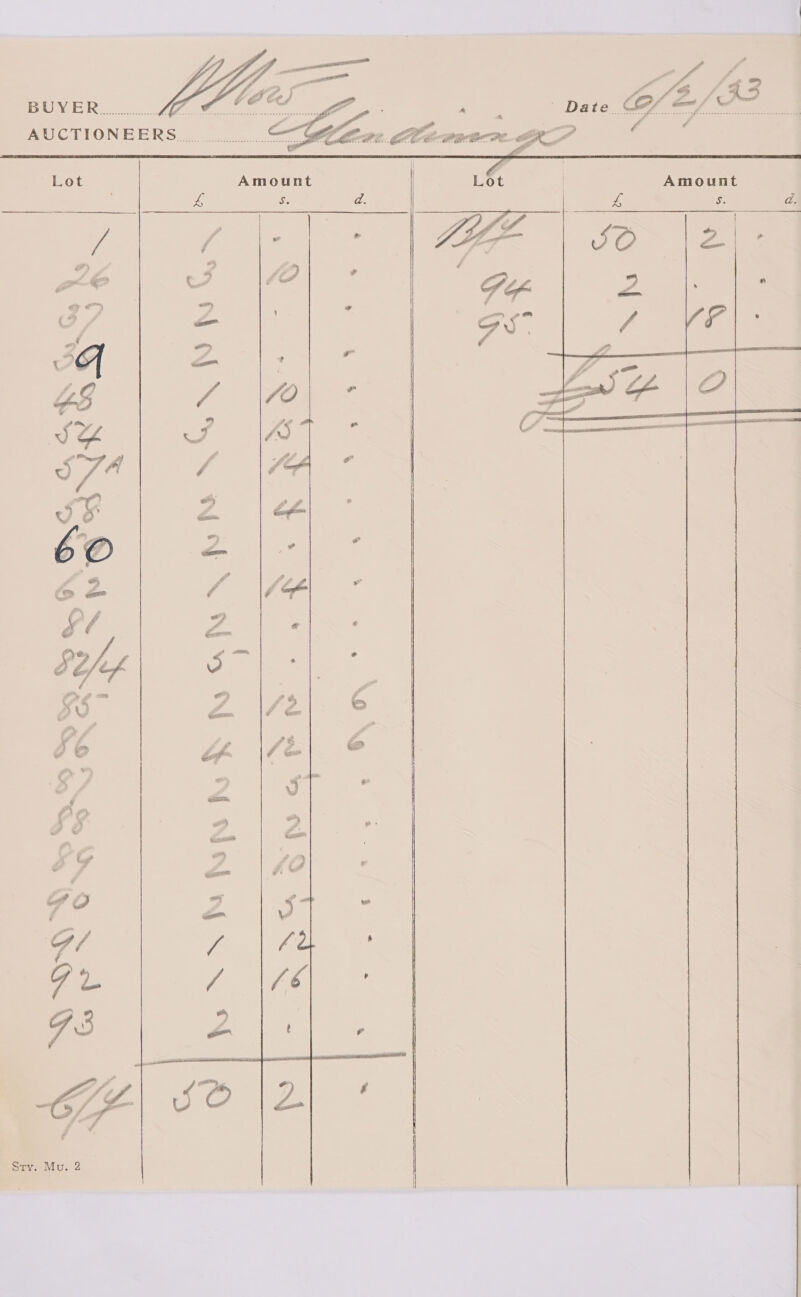 BUYER
Date 6/2/33
AUCTIONEERS Glendining
Lot Amount
£ s. d.
1 1 - -
26 3 10 -
37 2 - -
39 2 - -
48 1 10 -
54 3 15 -
57A 1 14 -
58 2 4 -
60 2 - -
62 1 14 -
81 2 - -
82/4 5 - -
85 2 12 6
86 4 12 6
87 2 5 -
88 2 2 -
89 2 10 -
90 2 5 -
91 1 12 -
92 1 16 -
93 2 - -
C/F 50 2 -
Lot Amount
£ s. d.
B/F 50 2 -
94 2 - -
95 1 18 -
£54 0
Sty. Mu. 2